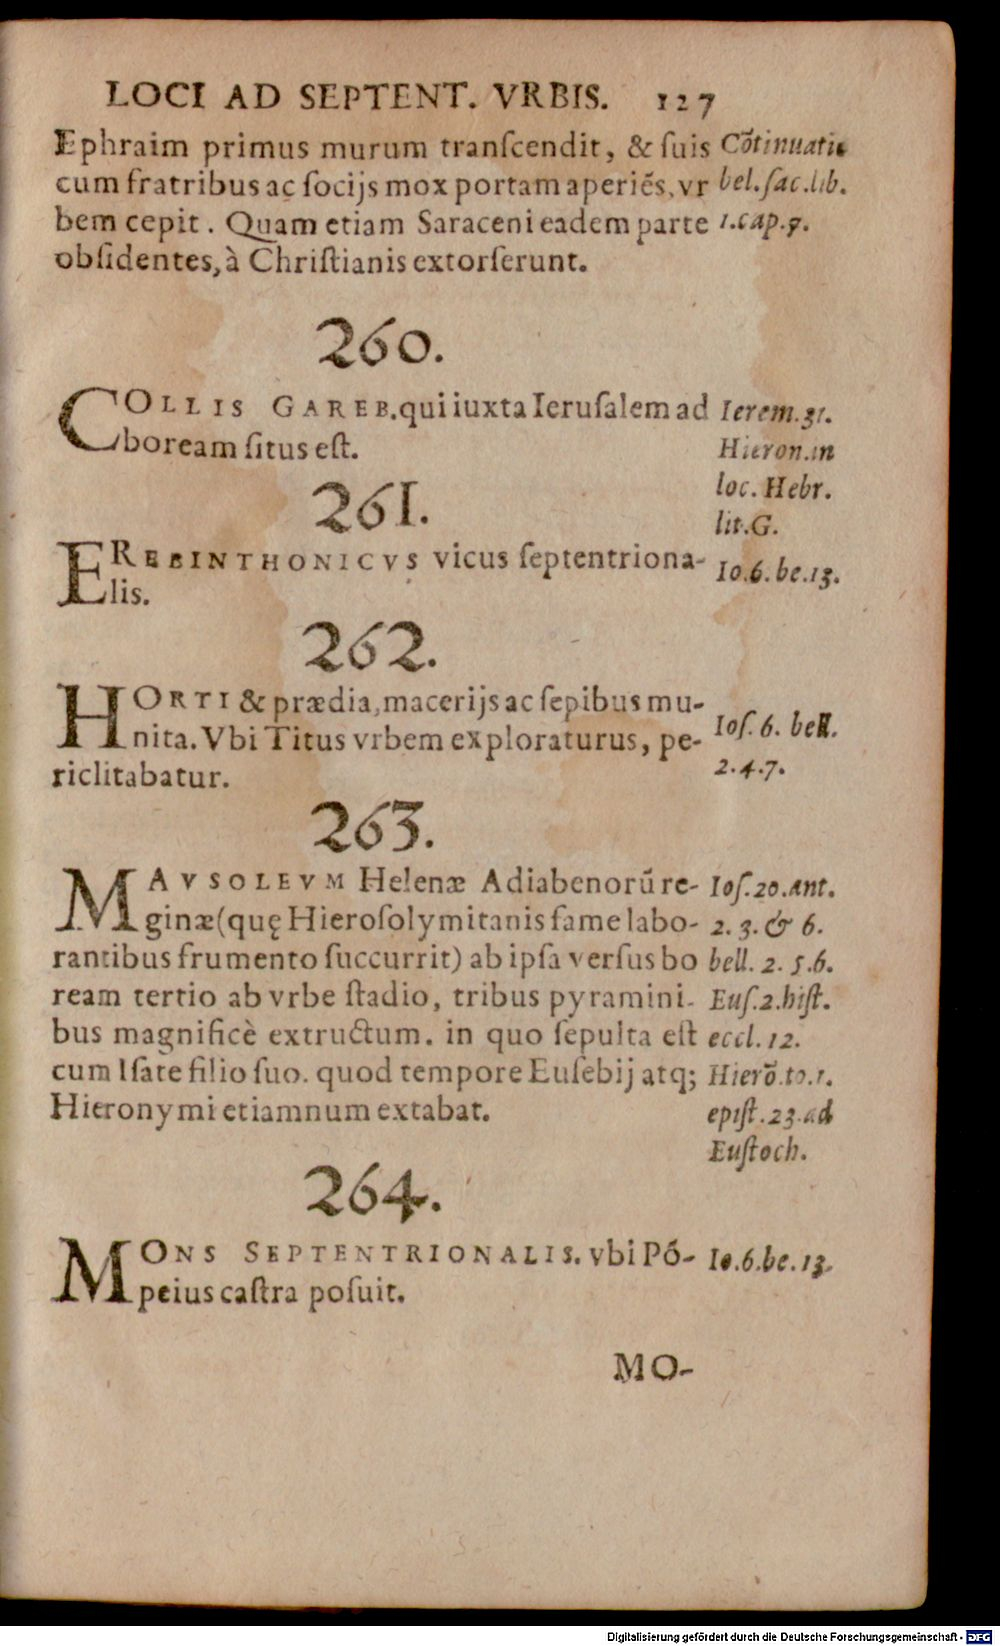 LOCI AD SEPTENT. VRBIS. 127
Ephraim primus murum tranſcendit, & ſuis
cum fratribus ac ſocijs mox portam aperiẽs, vr
bem cepit. Quam etiam Saraceni eadem parte
obſidentes, à Chriſtianis extorſerunt.
Cõtinuatio
bel. ſac. lib.
1. cap. 7.
260.
COLLIS GAREB. qui iuxta Ieruſalem ad
boream ſitus eſt.
Ierem. 31.
Hieron. in
loc. Hebr.
lit. G.
261.
EREBINTHONICVS vicus ſeptentriona-
lis.
Io. 6. be. 13.
262.
HORTI & prædia, macerijs ac ſepibus mu-
nita. Vbi Titus vrbem exploraturus, pe-
riclitabatur.
Ioſ. 6. bell.
2. 4. 7.
263.
MAVSOLEVM Helenæ Adiabenorũ re-
ginæ (quę Hieroſolymitanis fame labo-
rantibus frumento ſuccurrit) ab ipſa verſus bo
ream tertio ab vrbe ſtadio, tribus pyramini-
bus magnificè extructum. in quo ſepulta eſt
cum Iſate filio ſuo. quod tempore Euſebij atq;
Hieronymi etiamnum extabat.
Ioſ. 20. ant.
2. 3. & 6.
bell. 2. 5. 6.
Euſ. 2. hiſt.
eccl. 12.
Hierõ. to. 1.
epiſt. 23. ad
Euſtoch.
264.
MONS SEPTENTRIONALIS. vbi Põ-
peius caſtra poſuit.
Io. 6. be. 13.
MO-
Digitalisierung gefördert durch die Deutsche Forschungsgemeinschaft - DFG